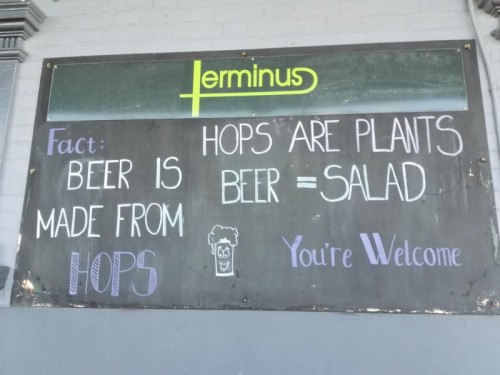 terminus
Fact:
BEER IS
MADE FROM
HOPS
HOPS ARE PLANTS
BEER = SALAD
You're Welcome